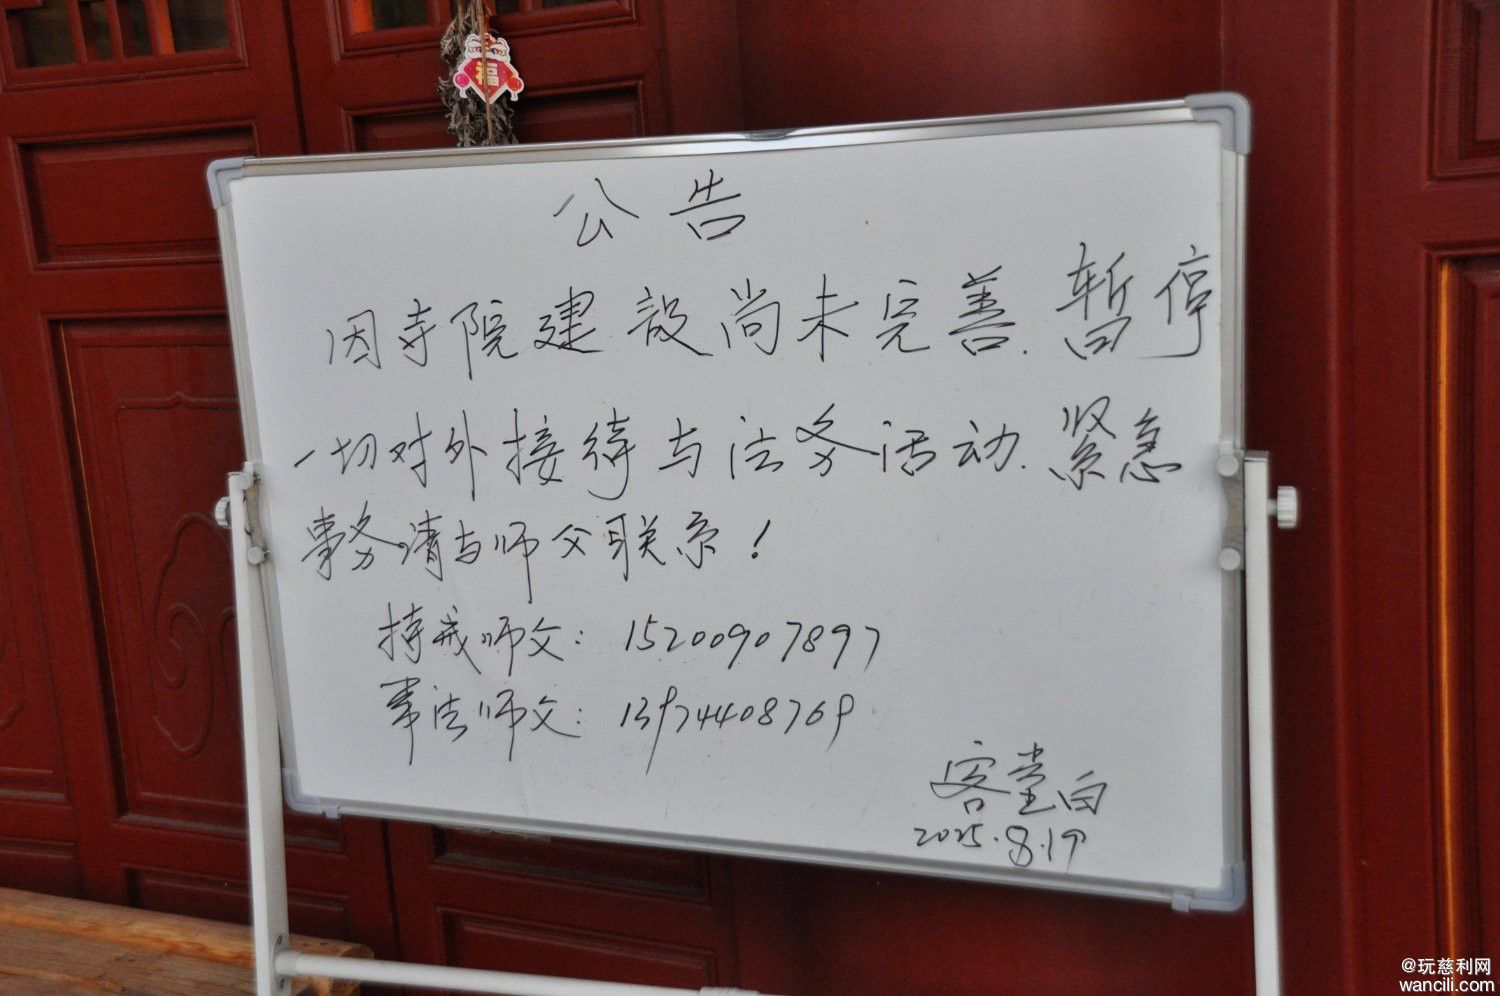 福
公告
因寺院建设尚未完善.暂停
一切对外接待与法务活动.紧急
事务.请与师父联系!
持戒师父:15200907897
师父:13974408769
客堂白
2025.8.19
@玩慈利网
wancili.com